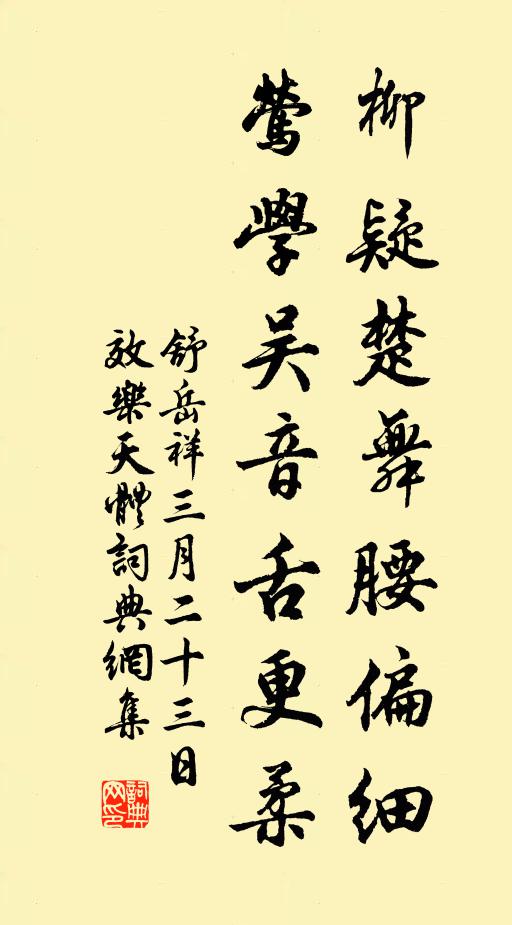 柳疑楚舞腰偏細
鶯學吳音舌更柔
舒岳祥三月二十三日
效樂天體詞典網集
詞典
网印